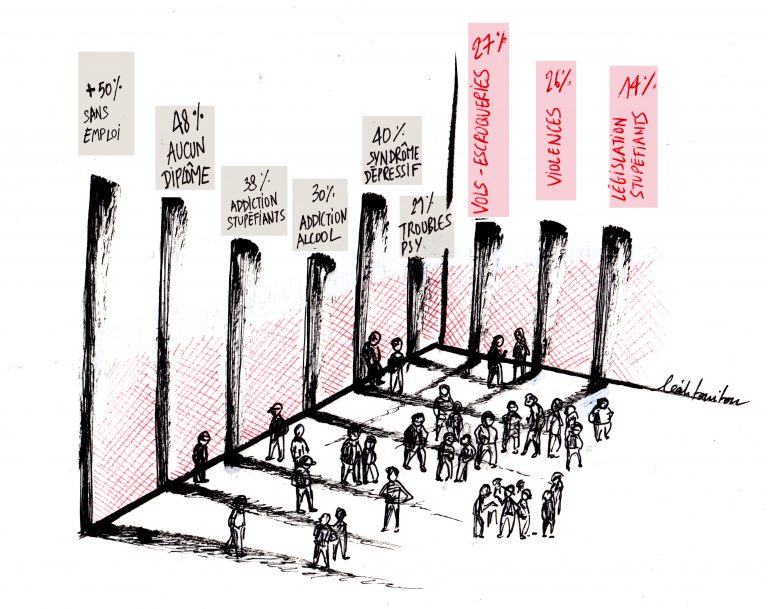 +50%
SANS
EMPLOI
48%
AUCUN
DIPLÔME
38%
ADDICTION
STUPÉFIANTS
30%
ADDICTION
ALCOOL
40%
SYNDRÔME
DÉPRESSIF
VOLS - ESCROQUERIES 27%
VIOLENCES 26%
14%
LÉGISLATION
STUPÉFIANTS
TROUBLES
PSY